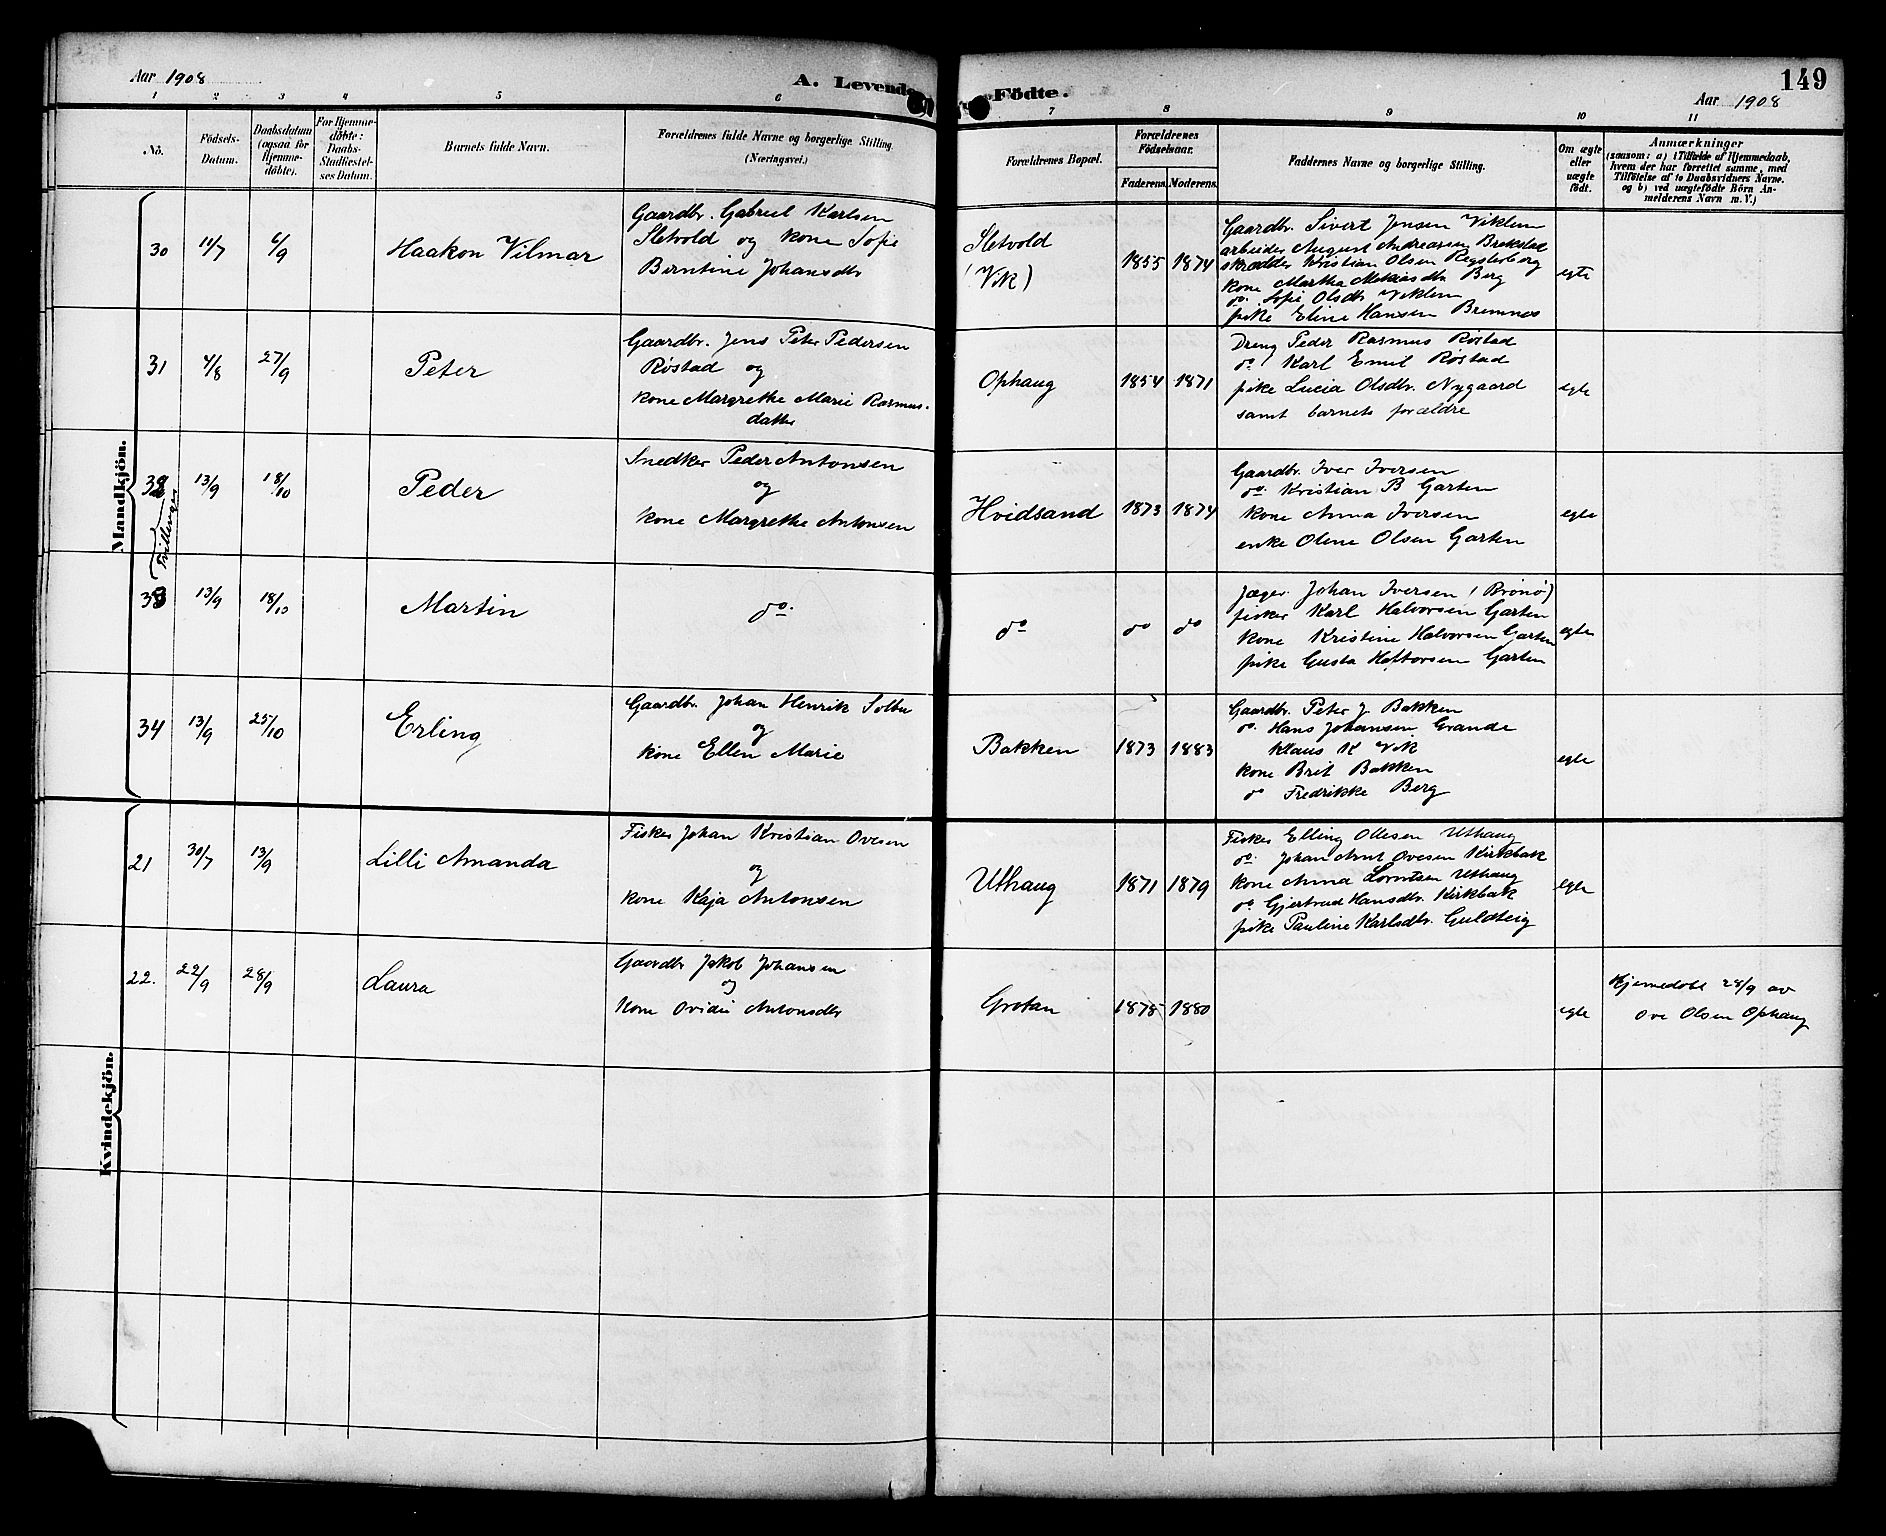 Aar 1908
A. Levende
Födte.
149
Aar 1908
1 2 3 4 5 6 7 8 9 10 11
No.
Födsels-
Datum.
Daabsdatum
(ogsaa for
Hjemme-
döbte).
For Hjemme-
döbte:
Daabs-
Stadfæstel-
ses Datum.
Barnets fulde Navn.
Forældrenes fulde Navne og borgerlige Stilling.
(Næringsvei.)
Forældrenes Bopæl.
Forældrenes
Födselsaar.
Faderens. Moderens.
Faddernes Navne og borgerlige Stilling.
Om ægte
eller
uægte
födt.
Anmærkninger
(saasom: a) i Tilfælde af Hjemmedaab,
hvem der har forrettet samme, med
Tilföielse af to Daabsvidners Navne.
og b) ved uægtefödte Börn An-
melderens Navn m. V.)
Mandkjön.
30 11/7 6/9 Haakon Vilmar
Gaardbr. Gabriel Karlsen
Sletvold og kone Sofie
Berntine Johansdtr
Sletvold
(Vik)
1855 1874
Gaardbr. Sivert Jensen Viklem
arbeider August Andreasen Brekstad
skrædder Kristian Olsen
kone Martha Berg
do. Sofie Olsdtr. Viklem
pike Eline Hansen Bremnes
egte
31 4/8 27/9 Peter
Gaardbr. Jens Peter Pedersen
Røstad og
kone Margrethe Marie Rasmus-
datter
Ophaug
1854 1871
Dreng Peder Rasmus Røstad
do. Karl Emil Røstad
pike Lucia Olsdtr. Nygaard
samt barnets forældre
egte
Tvillinger
32 13/9 18/10 Peder
Snedker Peder Antonsen
og
kone Margrethe Antonsen
Hvidsand
1873 1874
Gaardbr. Iver Iversen
do. Kristian B Garten
kone Anna Iversen
enke Oline Olsen Garten
egte
33 13/9 18/10 Martin
do.
do do do
Jæger. Johan Iversen (Brønø)
fisker Karl Halvorsen Garten
kone Kristine Halvorsen Garten
pike Gusta Garten
egte
34 13/9 25/10 Erling
Gaardbr. Johan Henrik Solbu
og
kone Ellen Marie
Bakken
1873 1883
Gaardbr. Peter J Bakken
do. Hans Johansen Grande
Klaus K Vik
kone Brit Bakken
do Fredrikke Berg
egte
Kvindekjön.
21 30/7 13/9 Lilli Amanda
Fisker Johan Kristian Ovesen
og
kone Kaja Antonsen
Uthaug
1871 1879
Fisker Elling Ollesen Uthaug
do. Johan Arnt Ovesen Kirkbak
kone Anna Lorntsen Uthaug
do Gjertrud Hansdtr. Kirkbak
pike Pauline Karlsdtr. Guldteig
egte
22. 22/9 28/9 Laura
Gaardbr Jakob Johansen
og
kone Ovidie Antonsdtr
Grotan
1878 1880
egte
Hjemedøbt 28/9 av
Ove Olsen Ophaug